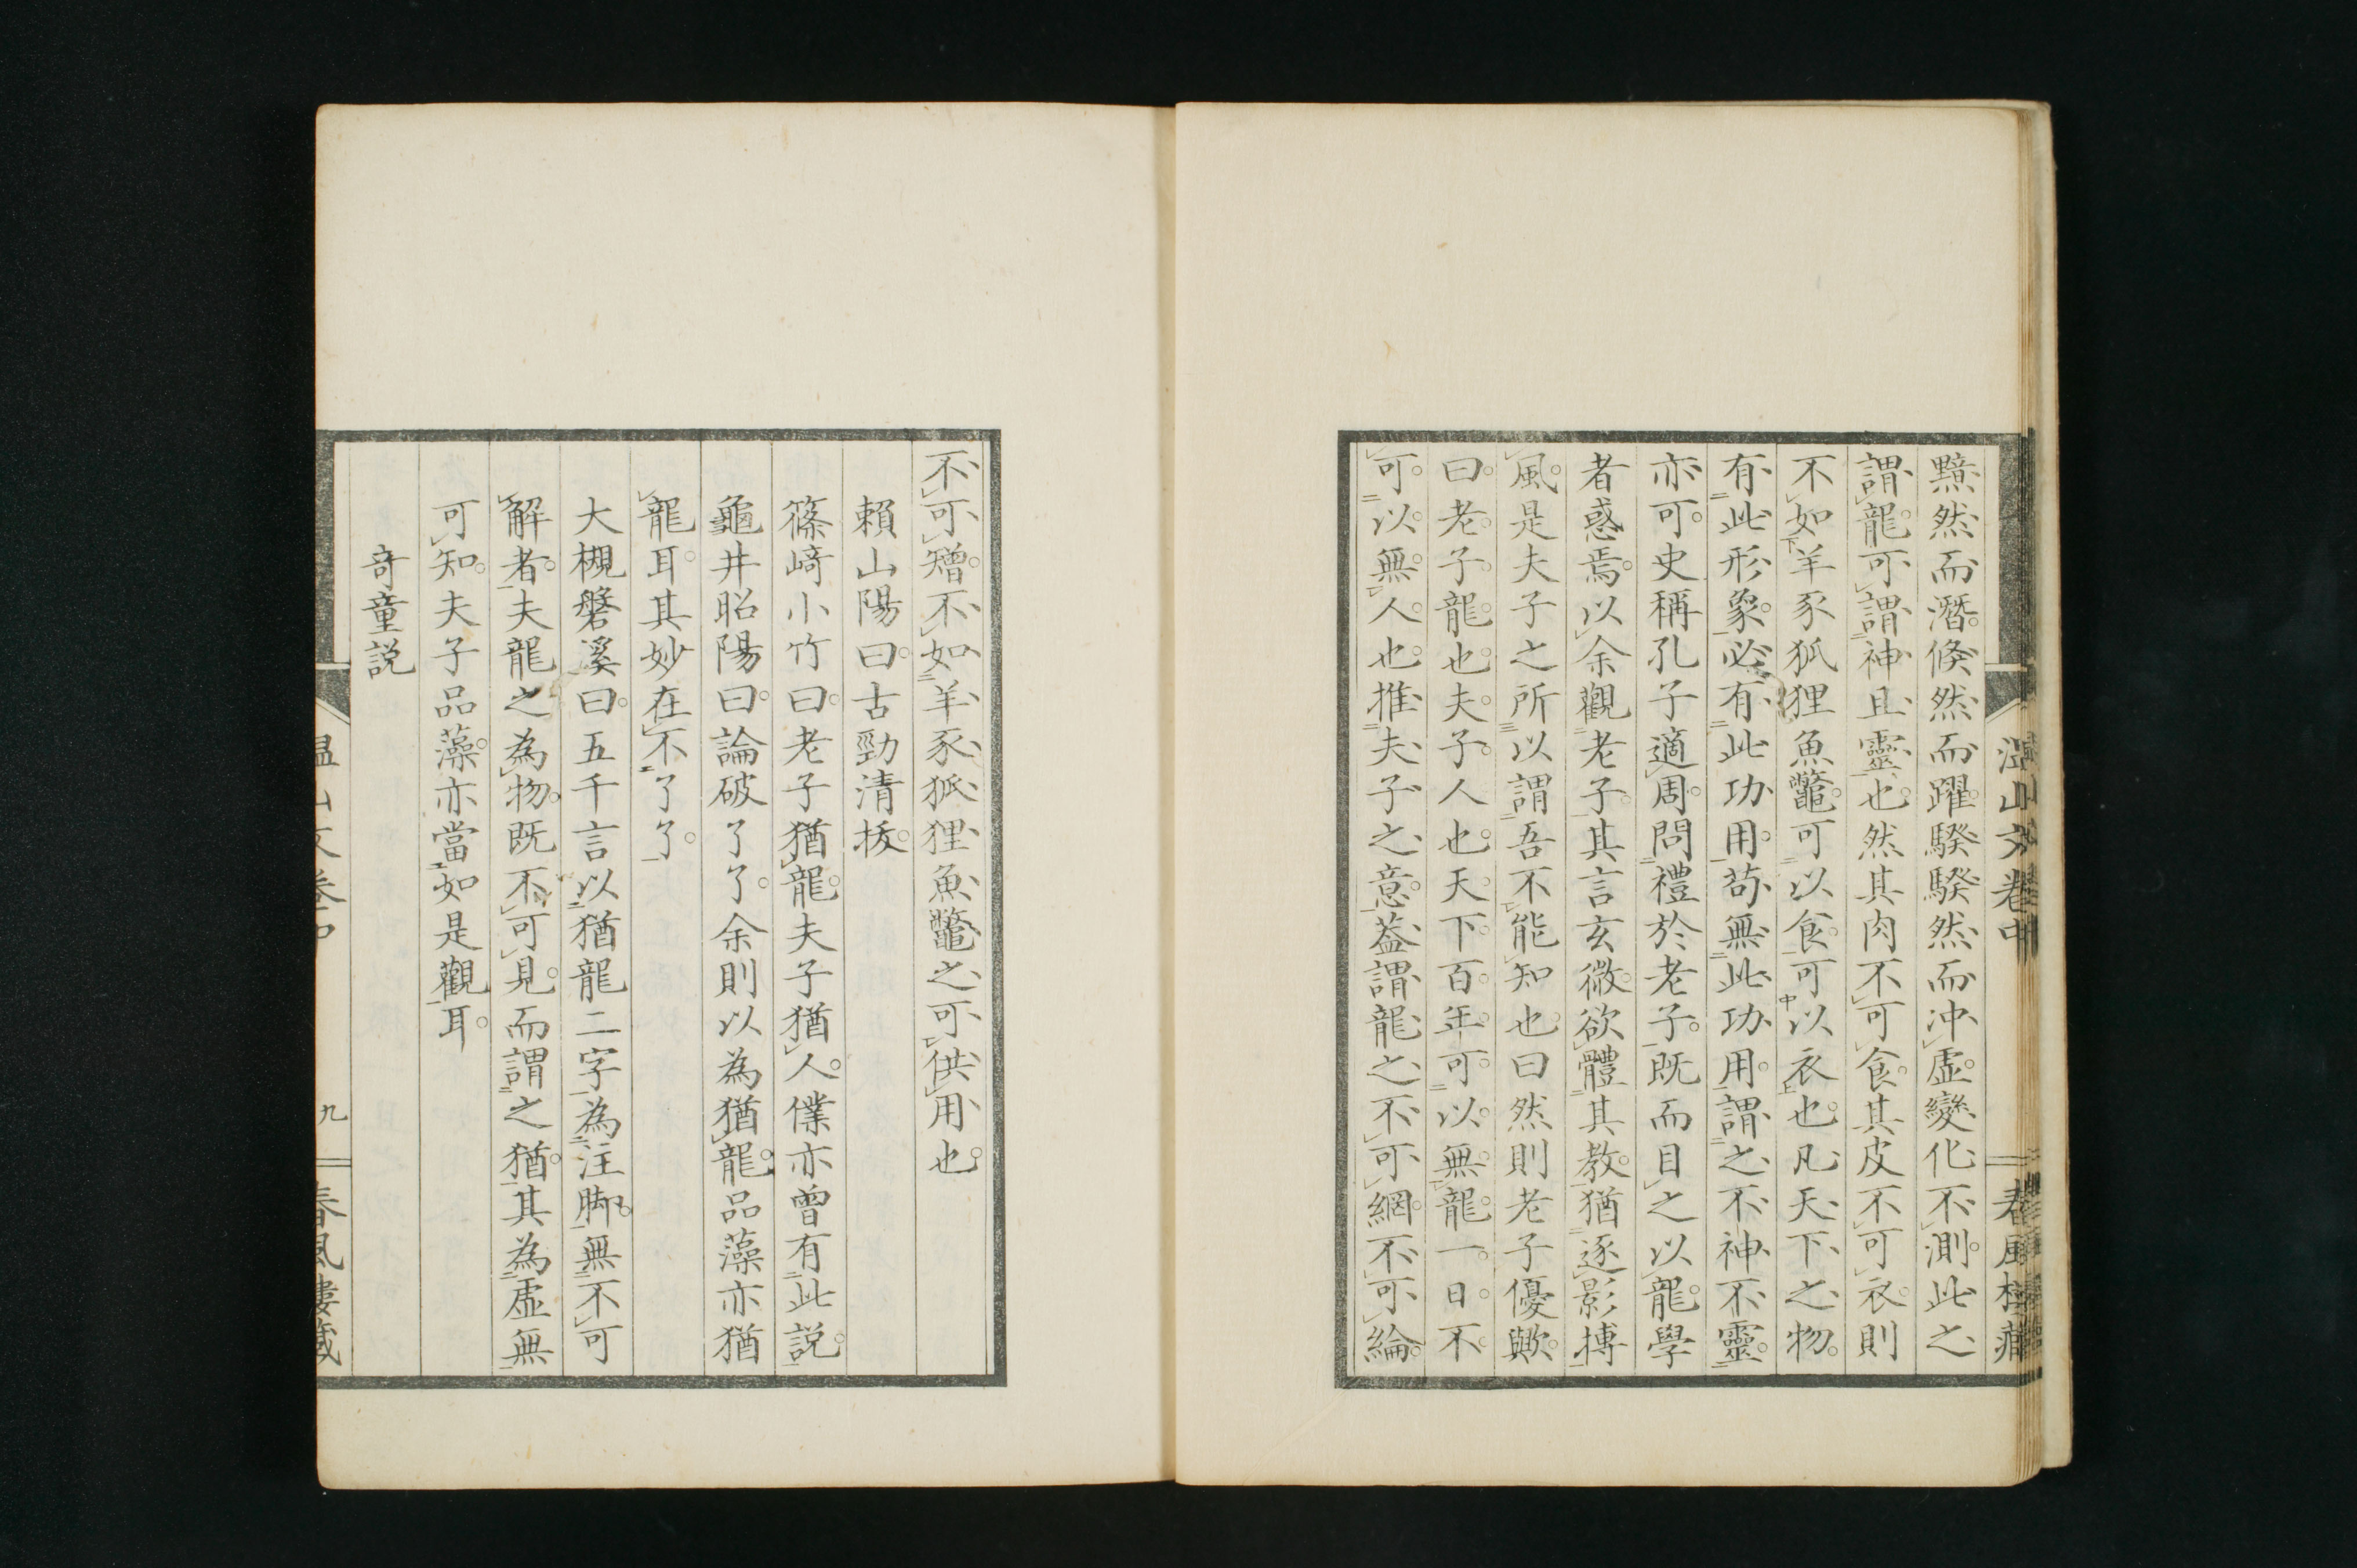 黙然而潛倏然而躍騤騤然而冲虛變化不測此之
謂龍可謂神且靈也然其肉不可食其皮不可衣則
不如羊豕狐狸魚鼈可以食可以衣也凡天下之物
有此形象必有此功用苟無此功用謂之不神不靈
亦可史稱孔子適周問禮於老子既而目之以龍學
者惑焉以余觀老子其言玄微欲體其教猶逐影搏
風是夫子之所以謂吾不能知也曰然則老子優歟
曰老子龍也夫子人也天下百年可以無龍一日不
可以無人也推夫子之意蓋謂龍之不可網不可綸
不可矰不如羊豕狐狸魚鼈之可供用也
賴山陽曰古勁清拔
篠﨑小竹曰老子猶龍夫子猶人僕亦曾有此説
龜井昭陽曰論破了了余則以為猶龍品藻亦猶
龍耳其妙在不了了
大槻磐溪曰五千言以猶龍二字為注脚無不可
解者夫龍之為物既不可見而謂之猶其為虛無
可知夫子品藻亦當如是觀耳
奇童説
温山文卷中
九
春風樓藏